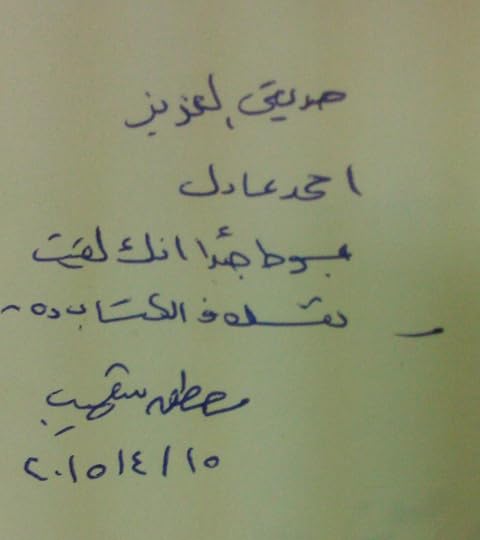 صديقي العزيز
احمد عادل
مبسوط جدًا انك لقيت
نفسك في الكتاب ده ~
مصطفى شهيب
٢٠١٥/٤/١٥